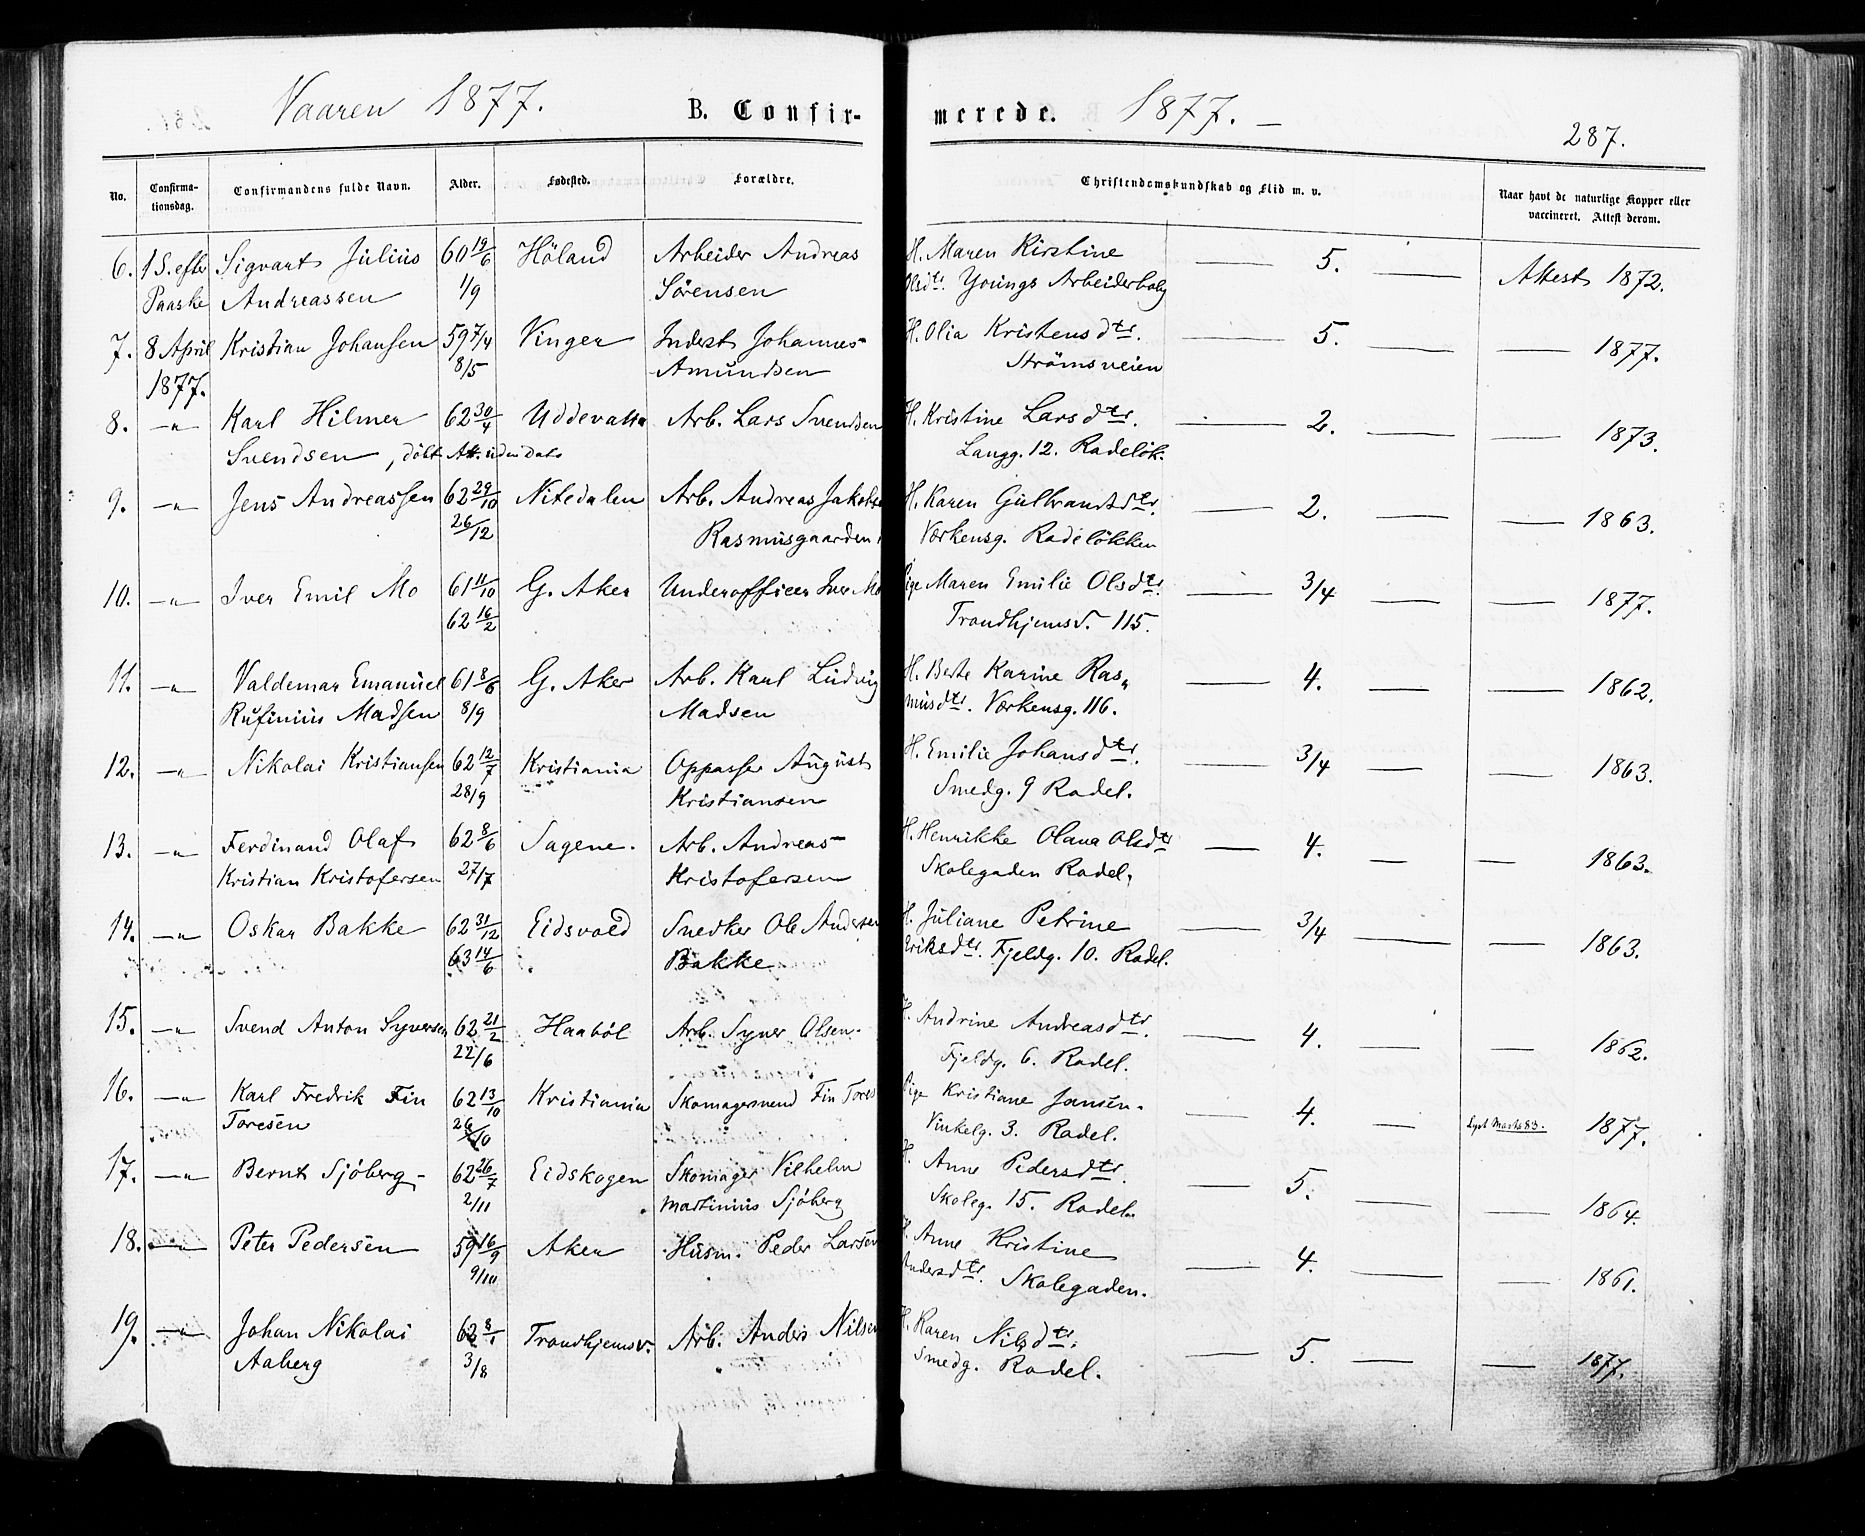 Vaaren 1877. B. Confir- merede. 1877. —
287.
No. Confirma-tionsdag. Confirmandens fulde Navn. Alder. Fødested. Forældre. Christendomskundskab og Flid m. v. Naar havt de naturlige Kopper eller vaccineret. Attest derom.
6. 1 S. efter Sigvart Julius 60 19/6 Höland Arbeider Andreas H. Maren Kirstine — 5. — Attest 1872.
Paaske Andreassen 1/9 Sörensen Olsdtr. Youngs Arbeiderbolig
7. 8 April Kristian Johansen 59 7/4 Vinger Inderst Johannes H. Olia Kristensdtr. — 5. — — 1877.
1877. 8/5 Amundsen Strömsveien
8. —"— Karl Hilmer 62 30/4 Uddevalla Arb. Lars Svendsen H. Kristine Larsdtr. — 2. — — 1873.
Svendsen, döbt Att. uden Dato Langg. 12. Radelök.
9. —"— Jens Andreassen 62 29/10 Nitedalen Arb. Andreas Jakobs H. Karen Gulbrandsdtr. — 2. — — 1863.
26/12 Rasmusgaarden Værkensg. Radelökken
10. —"— Iver Emil Mo 61 11/10 G. Aker Underofficer Iver Mo Pige Maren Emilie Olsdtr. — 3/4 — — 1877.
62 16/2 Trondhjemsv. 115.
11. —"— Valdemar Emanuel 61 8/6 G. Aker Arb. Karl Ludvig H. Berte Karine Ras„ — 4. — — 1862.
Rufinius Madsen 8/9 Madsen musdtr. Værkensg. 116.
12. —"— Nikolai Kristiansen 62 12/7 Kristiania Oppasser August H. Emilie Johansdtr. — 3/4 — — 1863.
28/9 Kristiansen Smedg. 9 Radel.
13. —"— Ferdinand Olaf 62 8/6 Sagene. Arb. Andreas H. Henrikke Olava Olsdtr — 4. — — 1863.
Kristian Kristofersen 27/7 Kristofersen Skolegaden Radel.
14. —"— Oskar Bakke 62 31/12 Eidsvold Snedker Ole Andersen H. Juliane Petrine — 3/4 — — 1863.
63 14/6 Bakke Eriksdtr. Fjeldg. 10. Radel.
15. —"— Svend Anton Syversen 62 21/2 Haaböl Arb. Syver Olsen. H. Andrine Andreasdtr. — 4. — — 1862.
22/6 Fjeldg. 6. Radel.
16. —"— Karl Fredrik Fin 62 13/10 Kristiania Skomagersvend Fin Tores Pige Kristiane Jansen. — 4. — Lyst Marts 83. 1877.
Toresen 26/10 Vinkelg. 3. Radel.
17. —"— Bernt Sjöberg 62 26/7 Eidskogen Skomager Vilhelm H. Anne Pedersdtr. — 5. — — 1864.
2/11 Martinius Sjöberg Skoleg. 15. Radel.
18. —"— Peter Pedersen 59 16/9 Aker Husm. Peder Larsen H. Anne Kristine — 4. — — 1861.
9/10 Andersdtr. Skolegaden.
19. —"— Johan Nikolai 62 8/1 Trondhjemsv. Arb. Anders Nilsen H. Karen Nilsdtr. — 5. — — 1877.
Aaberg 3/8 Smedg. Radel.